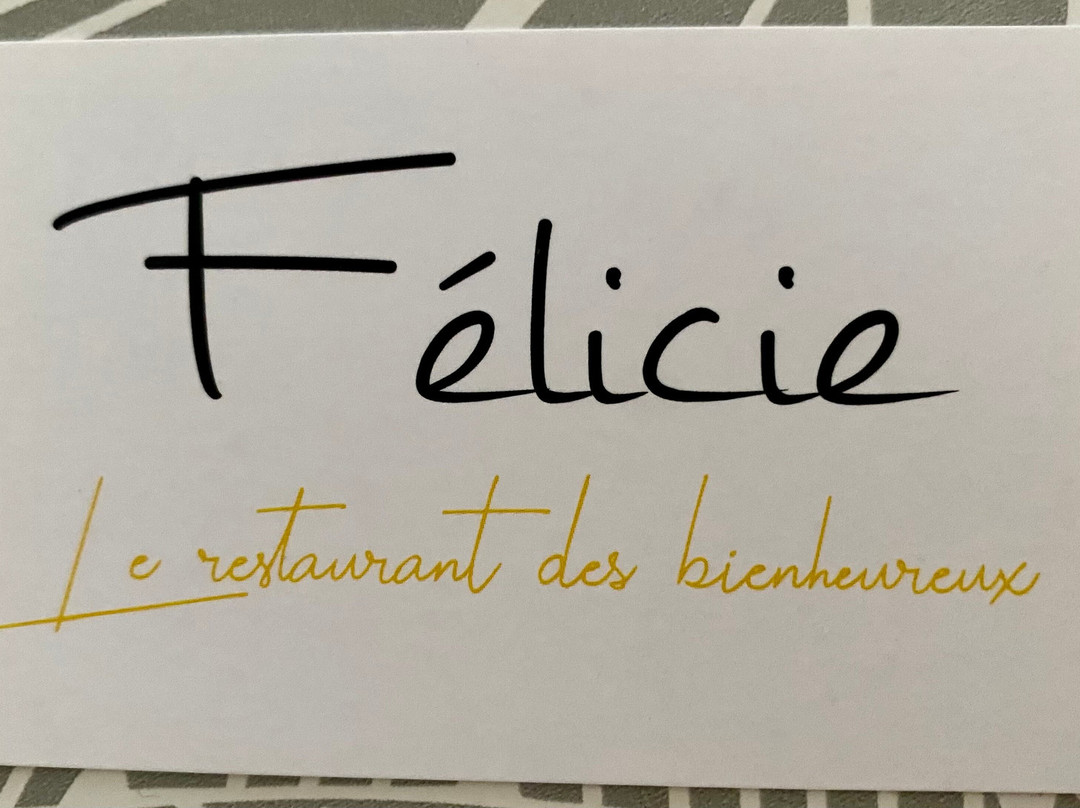 Félicie
Le restaurant des bienheureux